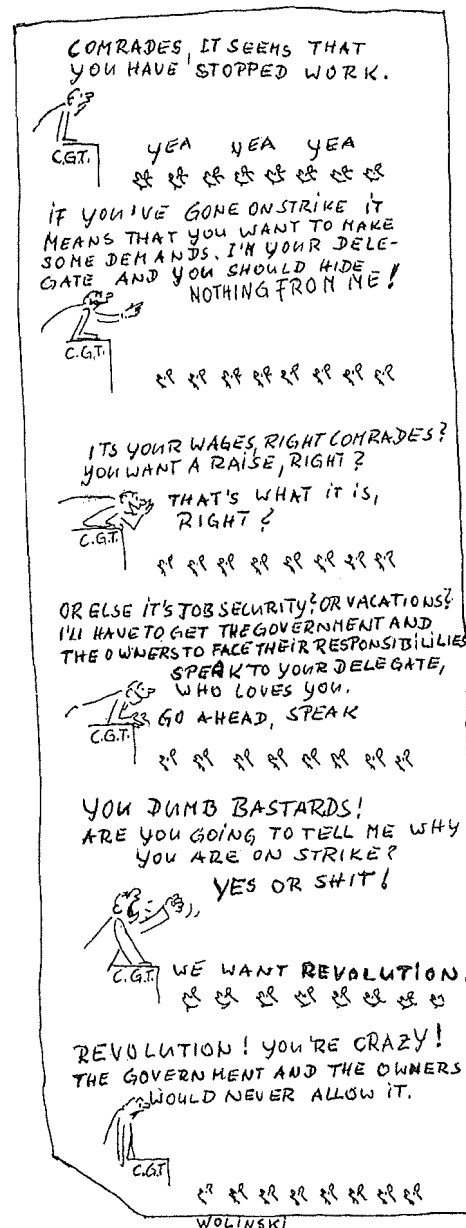 COMRADES, IT SEEMS THAT
YOU HAVE STOPPED WORK.
C.G.T.
YEA YEA YEA
IF YOU'VE GONE ON STRIKE IT
MEANS THAT YOU WANT TO MAKE
SOME DEMANDS. I'M YOUR DELE-
GATE AND YOU SHOULD HIDE
NOTHING FROM ME!
C.G.T.
ITS YOUR WAGES, RIGHT COMRADES?
YOU WANT A RAISE, RIGHT?
THAT'S WHAT IT IS,
RIGHT?
C.G.T.
OR ELSE IT'S JOB SECURITY? OR VACATIONS?
I'LL HAVE TO GET THE GOVERNMENT AND
THE OWNERS TO FACE THEIR RESPONSIBILILIES
SPEAK TO YOUR DELEGATE,
WHO LOVES YOU.
GO AHEAD, SPEAK
C.G.T.
YOU DUMB BASTARDS!
ARE YOU GOING TO TELL ME WHY
YOU ARE ON STRIKE?
YES OR SHIT!
C.G.T.
WE WANT REVOLUTION.
REVOLUTION! YOU'RE CRAZY!
THE GOVERNMENT AND THE OWNERS
WOULD NEVER ALLOW IT.
C.G.T
WOLINSKI